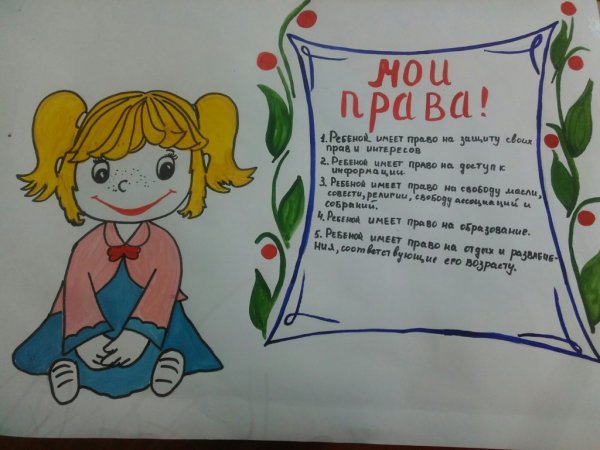 МОИ
ПРАВА!
1. РЕБЕНОК ИМЕЕТ ПРАВО НА ЗАЩИТУ СВОИХ
ПРАВ И ИНТЕРЕСОВ
2. РЕБЕНОК ИМЕЕТ ПРАВО НА ДОСТУП К
ИНФОРМАЦИИ
3. РЕБЕНОК ИМЕЕТ ПРАВО НА СВОБОДУ МЫСЛИ,
СОВЕСТИ, РЕЛИГИИ, СВОБОДУ АССОЦИАЦИЙ И
СОБРАНИЙ.
4. РЕБЕНОК ИМЕЕТ ПРАВО НА ОБРАЗОВАНИЕ.
5. РЕБЕНОК ИМЕЕТ ПРАВО НА ОТДЫХ И РАЗВЛЕЧЕ-
НИЯ, СООТВЕТСТВУЮЩИЕ ЕГО ВОЗРАСТУ.